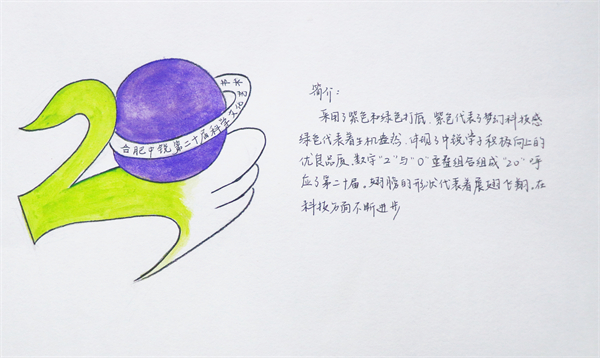 合肥中锐第二十届科学文化艺术
简介：
采用了紫色和绿色打底，紫色代表了梦幻科技感
绿色代表着生机盎然，体现了中锐学子积极向上的
优良品质。数字"2"与"0"重叠组合组成"20"呼
应了第二十届。翅膀的形状代表着展翅飞翔。在
科技方面不断进步